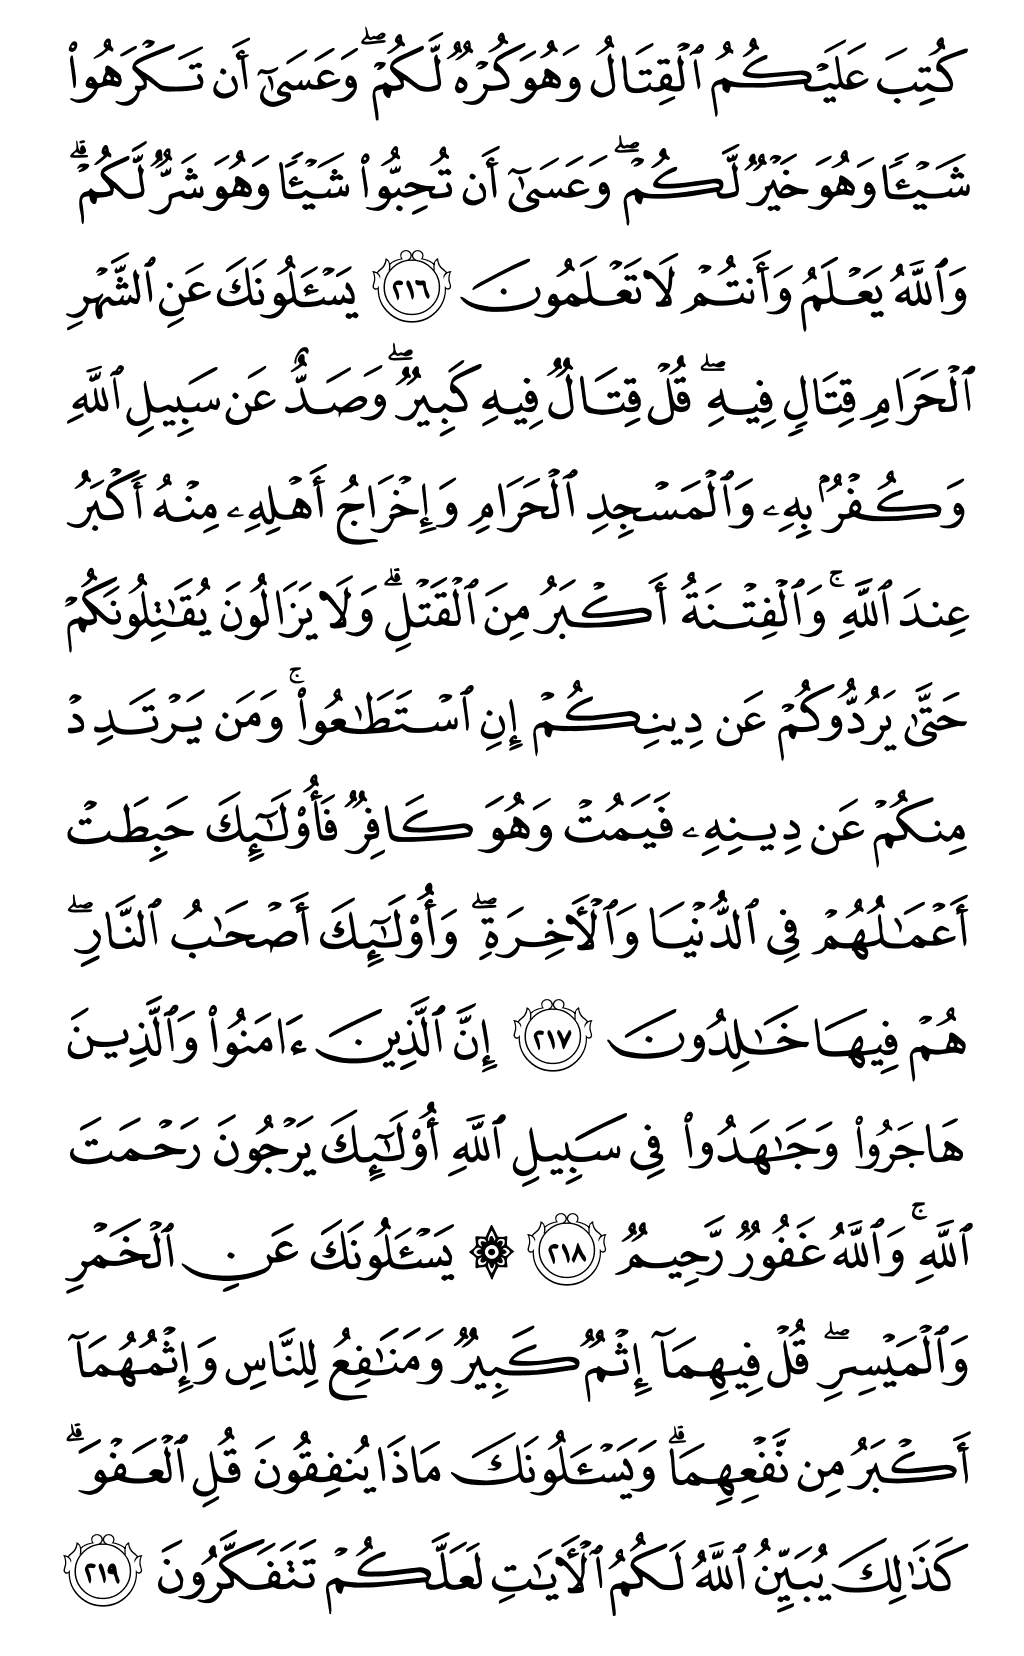 كُتِبَ عَلَيْكُمُ ٱلْقِتَالُ وَهُوَ كُرْهٌ لَّكُمْ ۖ وَعَسَىٰٓ أَن تَكْرَهُوا۟
شَيْـًٔا وَهُوَ خَيْرٌ لَّكُمْ ۖ وَعَسَىٰٓ أَن تُحِبُّوا۟ شَيْـًٔا وَهُوَ شَرٌّ لَّكُمْ ۗ
وَٱللَّهُ يَعْلَمُ وَأَنتُمْ لَا تَعْلَمُونَ ٢١٦ يَسْـَٔلُونَكَ عَنِ ٱلشَّهْرِ
ٱلْحَرَامِ قِتَالٍ فِيهِ ۖ قُلْ قِتَالٌ فِيهِ كَبِيرٌ ۖ وَصَدٌّ عَن سَبِيلِ ٱللَّهِ
وَكُفْرٌۢ بِهِۦ وَٱلْمَسْجِدِ ٱلْحَرَامِ وَإِخْرَاجُ أَهْلِهِۦ مِنْهُ أَكْبَرُ
عِندَ ٱللَّهِ ۚ وَٱلْفِتْنَةُ أَكْبَرُ مِنَ ٱلْقَتْلِ ۗ وَلَا يَزَالُونَ يُقَـٰتِلُونَكُمْ
حَتَّىٰ يَرُدُّوكُمْ عَن دِينِكُمْ إِنِ ٱسْتَطَـٰعُوا۟ ۚ وَمَن يَرْتَدِدْ
مِنكُمْ عَن دِينِهِۦ فَيَمُتْ وَهُوَ كَافِرٌ فَأُو۟لَـٰٓئِكَ حَبِطَتْ
أَعْمَـٰلُهُمْ فِى ٱلدُّنْيَا وَٱلْـَٔاخِرَةِ ۖ وَأُو۟لَـٰٓئِكَ أَصْحَـٰبُ ٱلنَّارِ ۖ
هُمْ فِيهَا خَـٰلِدُونَ ٢١٧ إِنَّ ٱلَّذِينَ ءَامَنُوا۟ وَٱلَّذِينَ
هَاجَرُوا۟ وَجَـٰهَدُوا۟ فِى سَبِيلِ ٱللَّهِ أُو۟لَـٰٓئِكَ يَرْجُونَ رَحْمَتَ
ٱللَّهِ ۚ وَٱللَّهُ غَفُورٌ رَّحِيمٌ ٢١٨ ۞ يَسْـَٔلُونَكَ عَنِ ٱلْخَمْرِ
وَٱلْمَيْسِرِ ۖ قُلْ فِيهِمَآ إِثْمٌ كَبِيرٌ وَمَنَـٰفِعُ لِلنَّاسِ وَإِثْمُهُمَآ
أَكْبَرُ مِن نَّفْعِهِمَا ۗ وَيَسْـَٔلُونَكَ مَاذَا يُنفِقُونَ قُلِ ٱلْعَفْوَ ۗ
كَذَٰلِكَ يُبَيِّنُ ٱللَّهُ لَكُمُ ٱلْـَٔايَـٰتِ لَعَلَّكُمْ تَتَفَكَّرُونَ ٢١٩